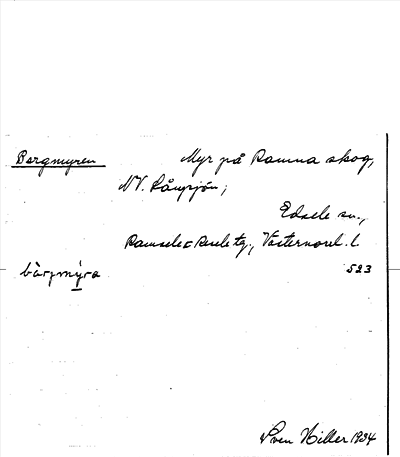 Bergmyren Myr på Ramna skog,
NV. Långsjön;
Edsele sn.,
Ramsele o Resele tg., Västernorrl. l.
bär,mỳra 523
Sven Hiller 1934